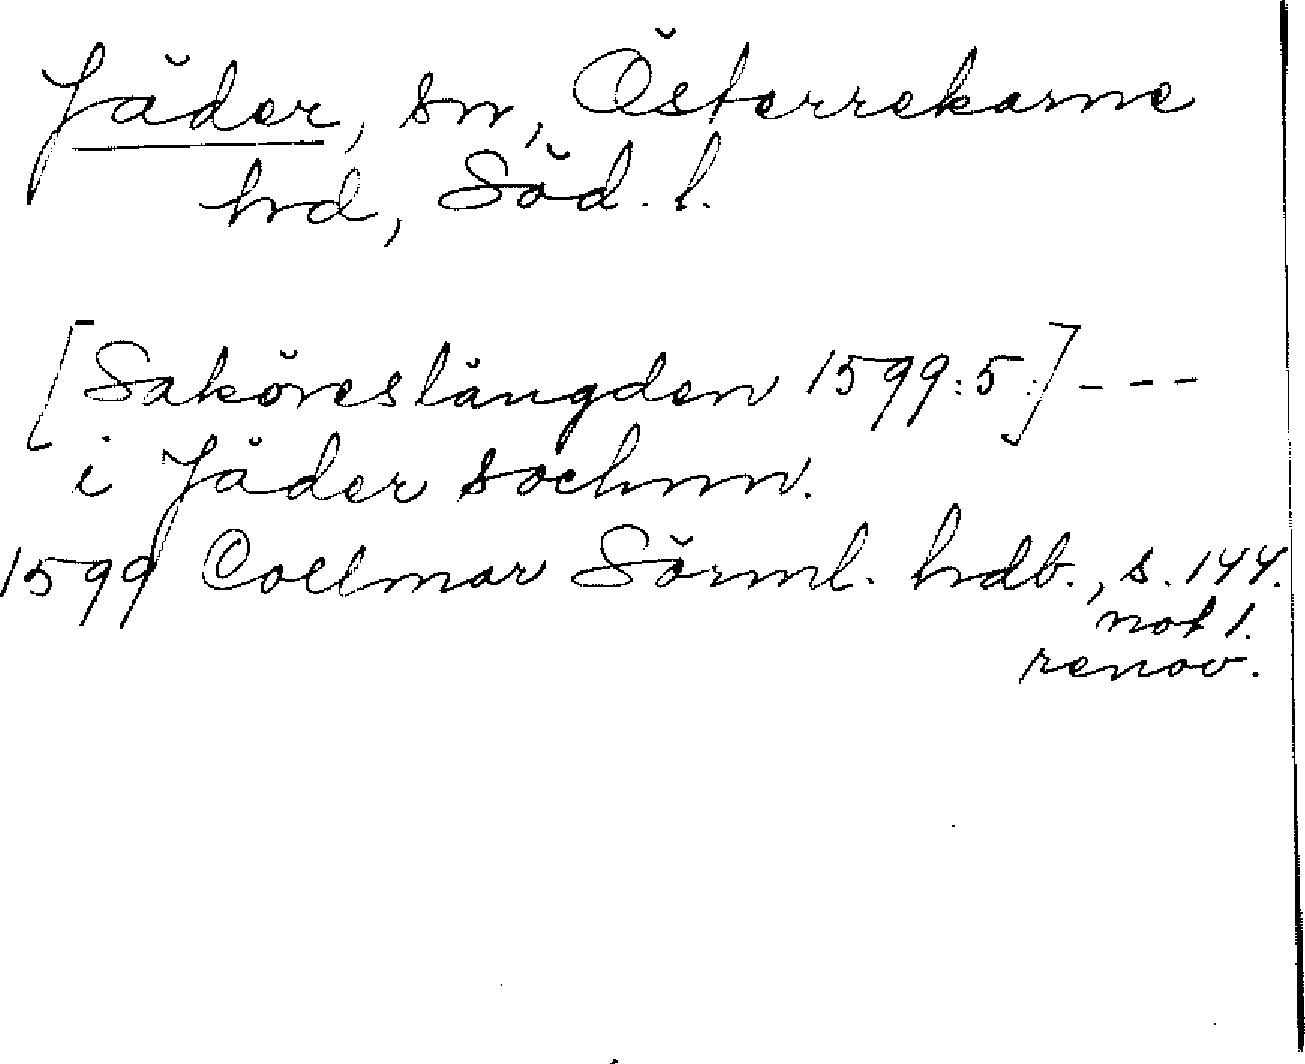 Jäder, sn, Österrekarne
hrd, Söd. l.
[Saköreslängden 1599:5:] ---
i Jäder sochnn.
1599 Collmar Sörml. hdb., s. 144.
not 1.
renov.